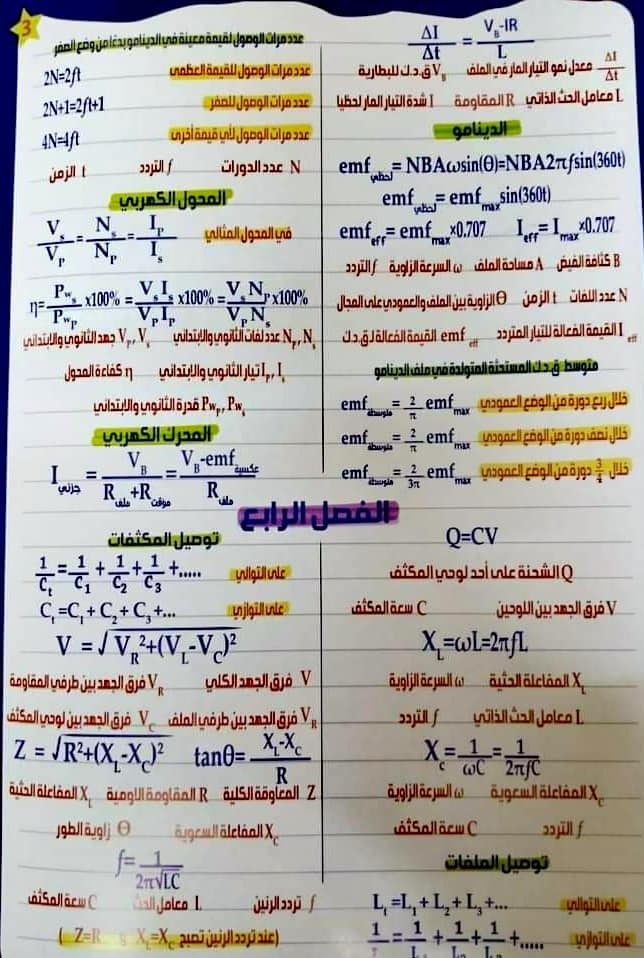 3
ΔI/Δt = (V_B-IR)/L
ΔI/Δt معدل نمو التيار المار في الملف V_B ق.د.ك للبطارية
L معامل الحث الذاتي R المقاومة I شدة التيار المار لحظيا
الدينامو
emf لحظي = NBAωsin(θ)=NBA2πfsin(360t)
emf لحظي = emf_max sin(360t)
emf_eff = emf_max x0.707 I_eff = I_max x0.707
B كثافة الفيض A مساحة الملف ω السرعة الزاوية f التردد
N عدد اللفات t الزمن θ الزاوية بين الملف والعمودي على المجال
I_eff القيمة الفعالة للتيار المتردد emf_eff القيمة الفعالة ل ق.د.ك
متوسط ق.د.ك المستحثة المتولدة في ملف الدينامو
خلال ربع دورة من الوضع العمودي emf متوسطة = 2/π emf_max
خلال نصف دورة من الوضع العمودي emf متوسطة = 2/π emf_max
خلال 3/4 دورة من الوضع العمودي emf متوسطة = 2/3π emf_max
عدد مرات الوصول لقيمة معينة في الدينامو بدءا من وضع الصفر
عدد مرات الوصول للقيمة العظمى 2N=2ft
عدد مرات الوصول للصفر 2N+1=2ft+1
عدد مرات الوصول لأي قيمة أخرى 4N=4ft
N عدد الدورات f التردد t الزمن
المحول الكهربي
في المحول المثالي V_s/V_P = N_s/N_P = I_P/I_s
η= Pw_s/Pw_P x100% = V_s I_s/V_P I_P x100% = V_s N_P/V_P N_s x100%
N_P, N_s عدد لفات الثانوي والابتدائي V_P, V_s جهد الثانوي والابتدائي
I_P, I_s تيار الثانوي والابتدائي η كفاءة المحول
Pw_P, Pw_s قدرة الثانوي والابتدائي
المحرك الكهربي
I جزئي = V_B/(R ملف + R موقت) = (V_B-emf عكسية)/R ملف
الفصل الرابع
Q=CV
Q الشحنة على أحد لوحي المكثف
V فرق الجهد بين اللوحين C سعة المكثف
X_L=ωL=2πfL
X_L المفاعلة الحثية ω السرعة الزاوية
L معامل الحث الذاتي f التردد
X_C = 1/ωC = 1/2πfC
X_C المفاعلة السعوية ω السرعة الزاوية
f التردد C سعة المكثف
توصيل الملفات
على التوالي L_t =L_1 + L_2 + L_3 +...
على التوازي 1/L = 1/L + 1/L + 1/L +.....
توصيل المكثفات
على التوالي 1/C_t = 1/C_1 + 1/C_2 + 1/C_3 +.....
على التوازي C_t =C_1 + C_2 + C_3 +...
V =√(V_R²+(V_L-V_C)²)
V فرق الجهد الكلي V_R فرق الجهد بين طرفي المقاومة
V_R فرق الجهد بين طرفي الملف V_C فرق الجهد بين لوحي المكثف
Z = √(R²+(X_L-X_C)²) tanθ= (X_L-X_C)/R
Z المعاوقة الكلية R المقاومة الاومية X_L المفاعلة الحثية
X_C المفاعلة السعوية θ زاوية الطور
f= 1/2π√LC
f تردد الرنين L معامل الحث C سعة المكثف
(عند تردد الرنين تصبح X_L=X_C و Z=R)